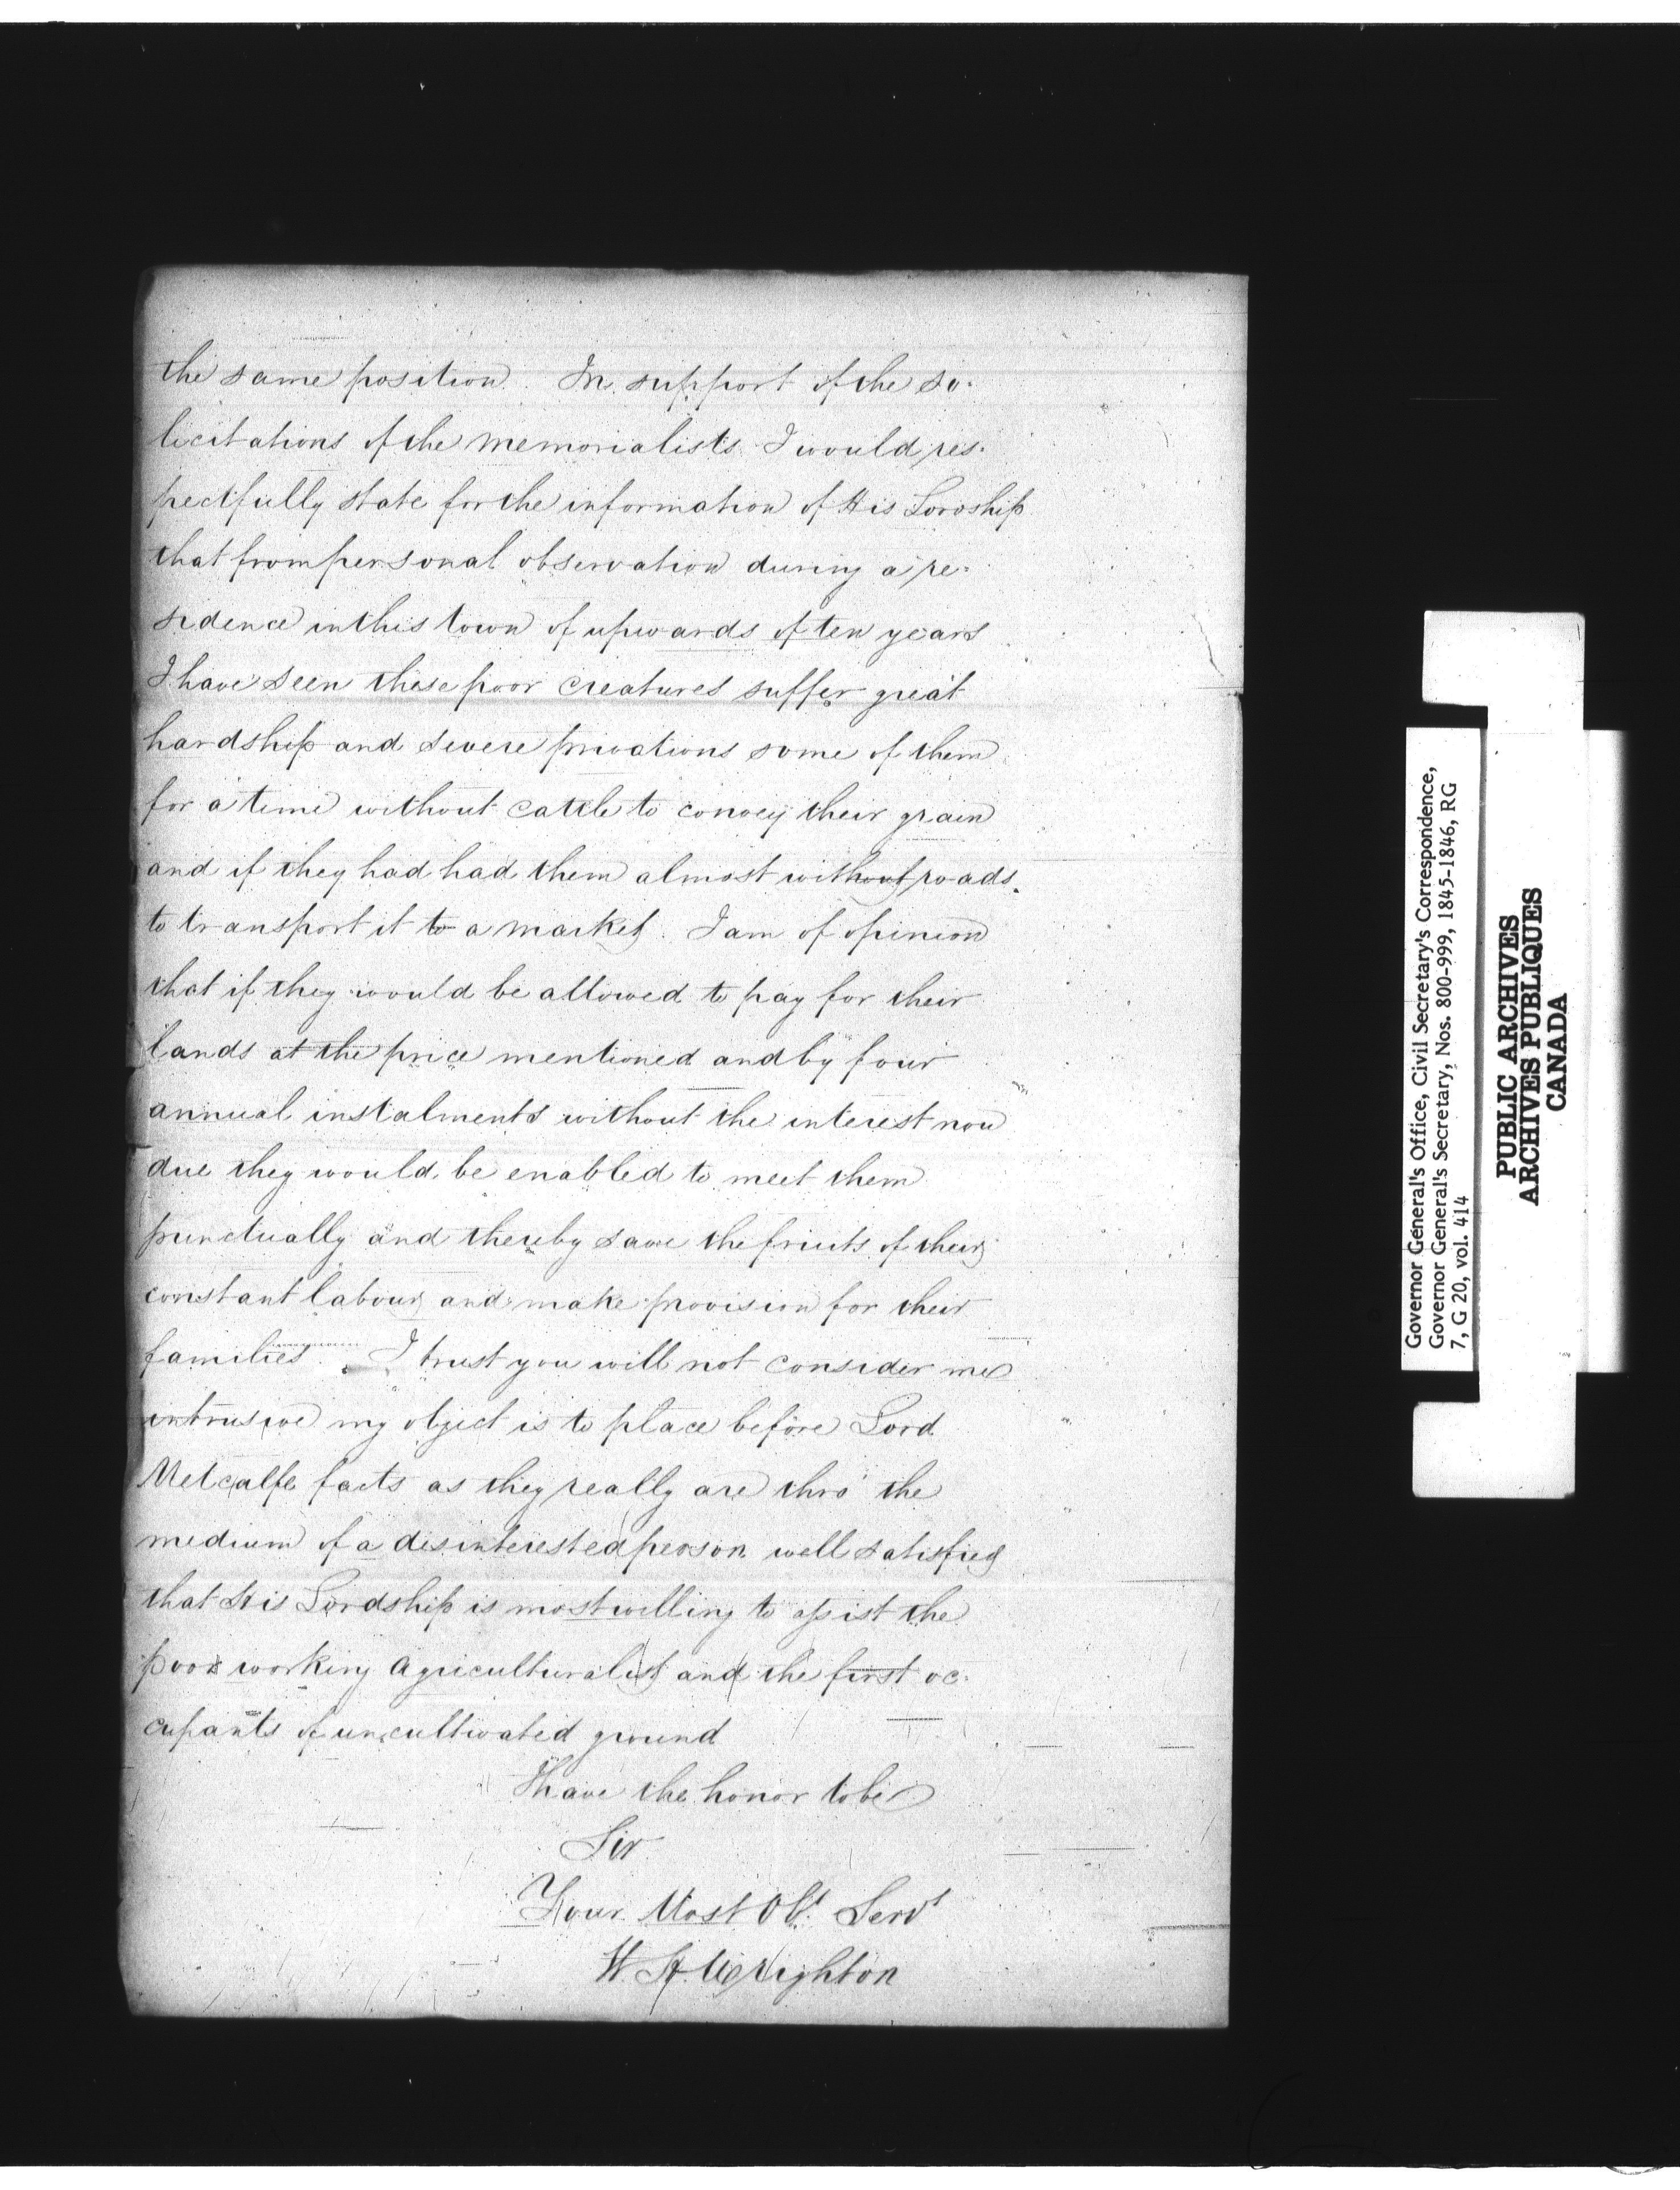 the same position. In support of the so-
licitations of the Memorialists I would res-
pectfully state for the information of His Lordship
that from personal observation during a re-
sidence in this town of upwards of ten years
I have seen these poor creatures suffer great
hardship and severe privations some of them
for a time without cattle to convey their grain
and if they had had them almost without roads
to transport it to a market. I am of opinion
that if they would be allowed to pay for their
lands at the price mentioned and by four
annual instalments without the interest now
due they would be enabled to meet them
punctually and thereby save the fruits of their
constant labour and make provision for their
families. I trust you will not consider me
intrusive my object is to place before Lord
Metcalfe facts as they really are thro' the
medium of a disinterested person well satisfied
that His Lordship is most willing to assist the
poor working Agriculturalist and the first oc-
cupants of uncultivated ground
I have the honor to be
Sir
Your Most Obt Servt
Governor General's Office, Civil Secretary's Correspondence,
Governor General's Secretary, Nos. 800-999, 1845-1846, RG
7, G 20, vol. 414
PUBLIC ARCHIVES
ARCHIVES PUBLIQUES
CANADA